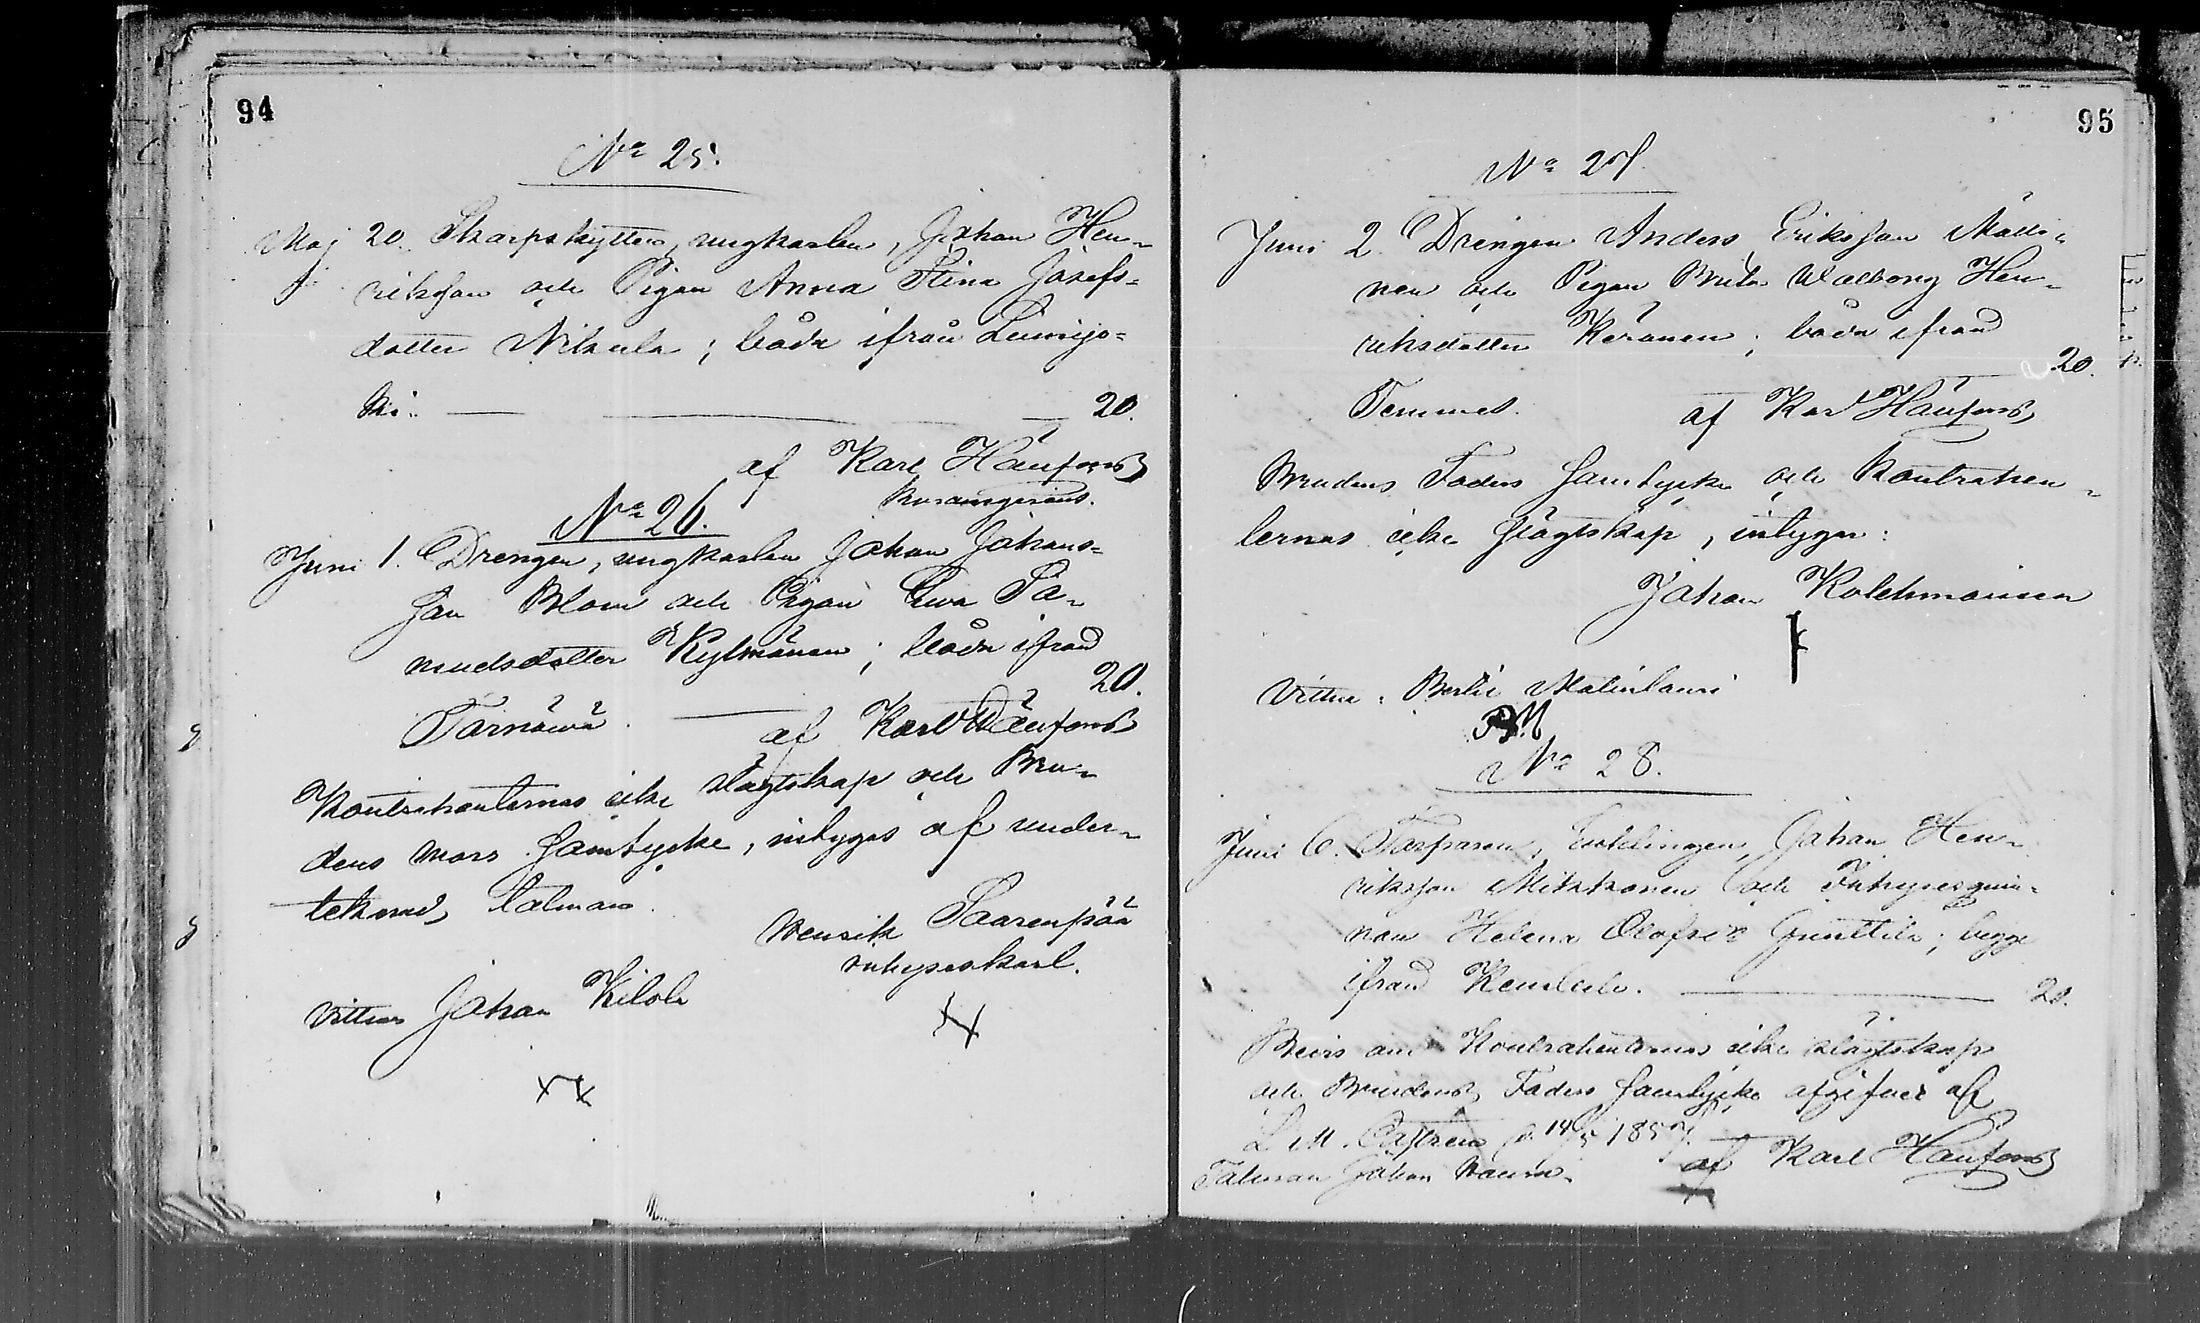 94
No 25.
Maj 20. Skarpskytten, ungkarlen, Johan Hen-
riksson och Pigan Anna Stina Josefs-
dotter Nikula; båda ifrån Limijo-
ki. 20.
af Karl Häufons
No 26.
Juni 1. Drengen, ungkarlen Johan Johans-
son Blom och Pigan Ewa Pa-
muelsdotter Kylmänen; båda ifrån
Tørnäwä. 20.
af Karl Häufons
Kontrahenternas icke slägtskap och Bru-
dens mors samtycke, intygas af under-
teknad, talman.
Henrik Saarenpää
inhyseskarl.
Vittnar Johan Kilola
95
No 27.
Juni 2. Drengen Anders Eriksson Mätti-
nen och Pigan Brita Walborg Hen-
riksdotter Keränen; båda ifrån
Temmes. 20.
af Karl Häufons
Brudens Faders samtycke och Kontrahen-
ternas icke slägtskap, intygar:
Johan Kolehmainen
Vittnar: Bertil Matinlauri
No 28.
Juni 6. Torparen, Enklingen, Johan Hen-
riksson Mikkonen och Inhysesqvin-
nan Helena Olofsdr Gunttila; begge
ifrån Kembele. 20.
Bevis om Kontrahenternas icke slägtskap
och Brudens Faders samtycke afgifvet af
L M. Castrén d. 14/5 1857.
Talman Johan
af Karl Häufons